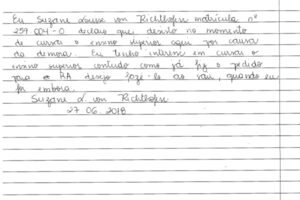 Eu Suzane Louise von Richthofen matrícula nº
257.004-0 declaro que desisto no momento
de cursar o ensino superior aqui por causa
da demora. Eu tenho interesse em cursar o
ensino superior contudo como já fiz o pedido
para RA desejo fazê-lo ao sair, quando eu
for embora.
Suzane L. von Richthofen
27.06.2018